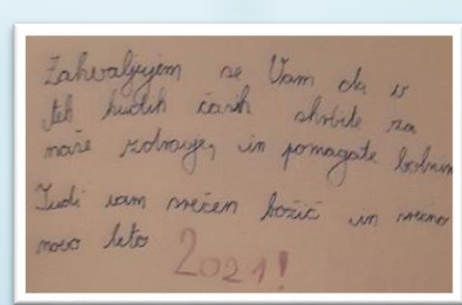 Zahvaljujem se Vam da v
teh hudih časih skrbite za
naše zdravje, in pomagate bolnim
Tudi vam srečen božič in srečno
novo leto 2021!